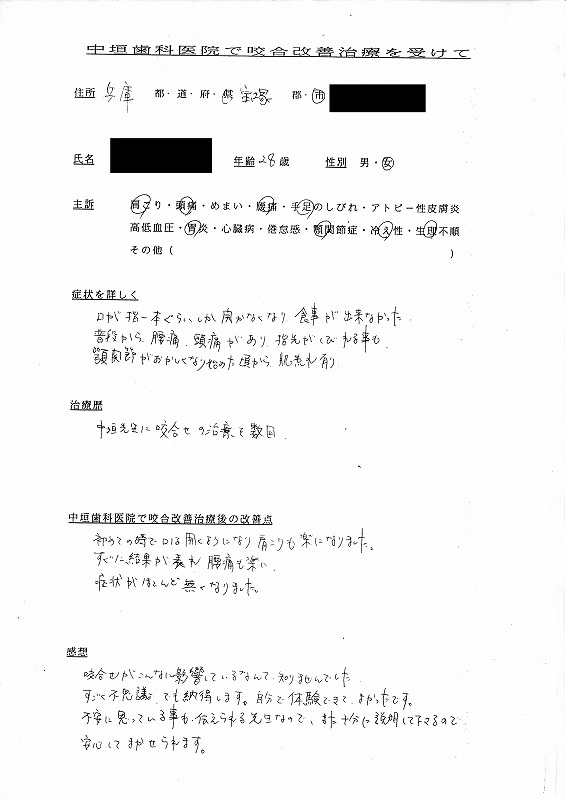 中垣歯科医院で咬合改善治療を受けて
住所 兵庫 都・道・府・県 宝塚 郡・市
氏名 年齢 28 歳 性別 男・女
主訴 肩こり・頭痛・めまい・腰痛・手足のしびれ・アトピー性皮膚炎
高低血圧・胃炎・心臓病・倦怠感・顎関節症・冷え性・生理不順
その他( )
症状を詳しく
口が指一本ぐらいしか開かなくなり、食事が出来なかった
普段から、腰痛、頭痛があり、指先がしびれる事も
顎関節がおかしくなり始めた頃から、肌荒れ有り
治療歴
中垣先生に咬合せの治療を数回.
中垣歯科医院で咬合改善治療後の改善点
初めての時で口は開くようになり肩こりも楽になりました。
すぐに結果が表れ 腰痛も楽に.
症状がほとんど無くなりました。
感想
咬合せがこんなに影響しているなんて知りませんでした
すごく不思議、でも納得します。自分で体験できて、よかったです。
不安に思っている事も、伝えられる先生なので、また十分に説明して下さるので
安心してまかせられます。